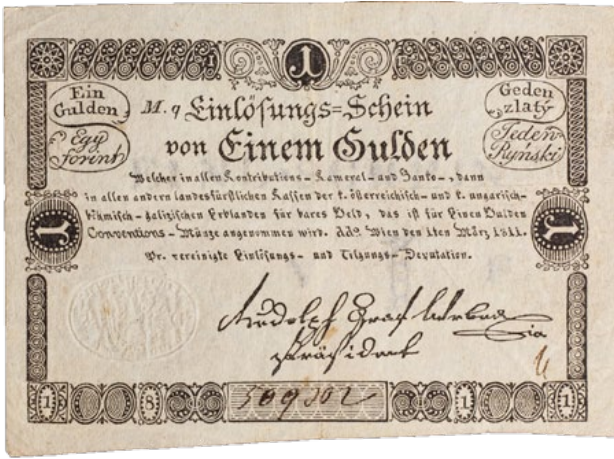 1
Ein
Gulden
Geden
zlatý
Egy
forint
Jeden
Ryński
M. q Einlösungs=Schein
von Einem Gulden
Welcher in allen Kontributions-, Kameral- und Banko-, dann
in allen andern landesfürstlichen Kassen der k. österreichisch- und k. ungarisch-
böhmisch-galizischen Erblanden für bares Geld, das ist für Einen Gulden
Conventions-Münze angenommen wird. ddo. Wien den 1ten März 1811.
Pr. vereinigte Einlösungs- und Tilgungs-Deputation.
1
1
Rudolph Graf
Präsident
1 8 1 1